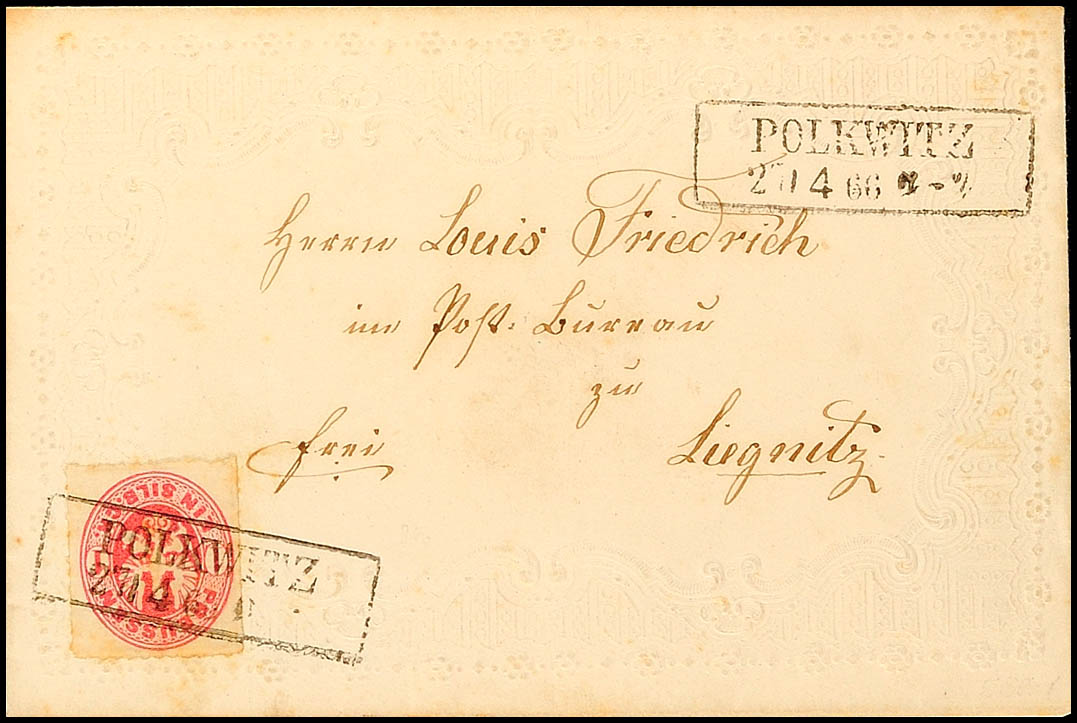 POLKWITZ
27 4 66
Herrn Louis Friedrich
im Post-Bureau
zu
frei Liegnitz.
EIN SILB. GR.
PREUSSEN
POLKWITZ
27 4